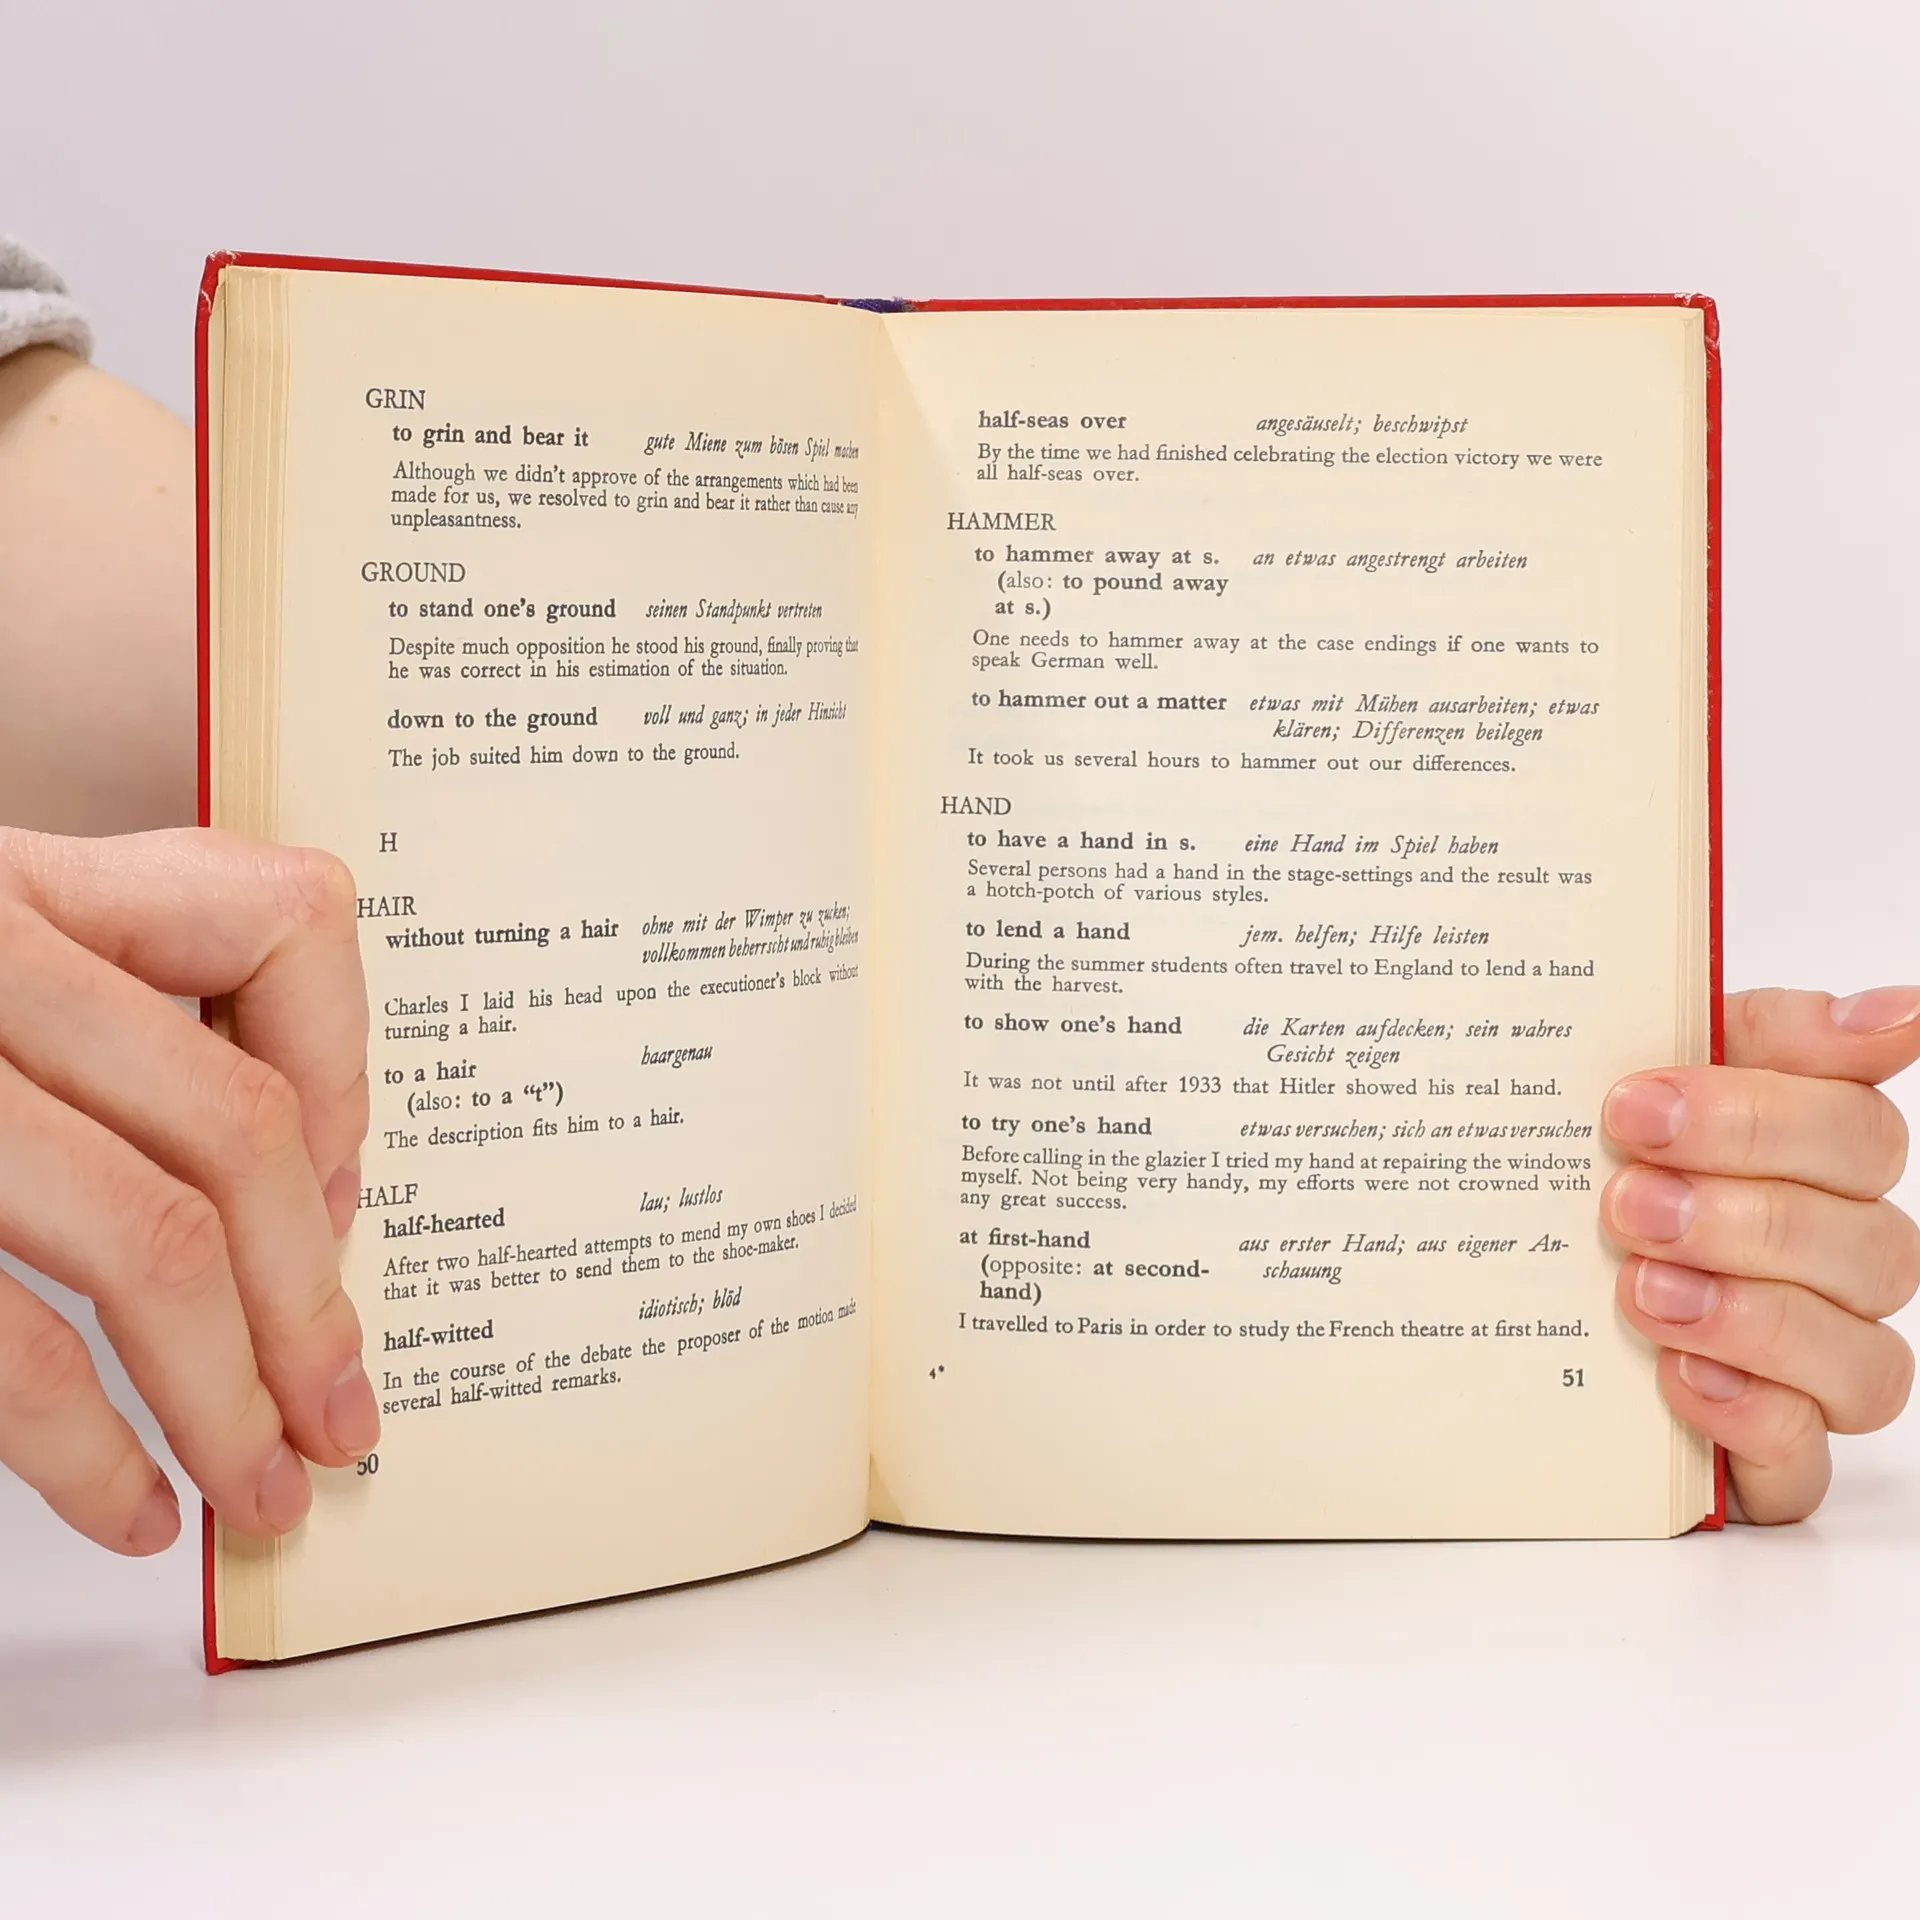 GRIN
to grin and bear it gute Miene zum bösen Spiel machen
Although we didn't approve of the arrangements which had been
made for us, we resolved to grin and bear it rather than cause any
unpleasantness.
GROUND
to stand one's ground seinen Standpunkt vertreten
Despite much opposition he stood his ground, finally proving that
he was correct in his estimation of the situation.
down to the ground voll und ganz; in jeder Hinsicht
The job suited him down to the ground.
H
HAIR
without turning a hair ohne mit der Wimper zu zucken;
vollkommen beherrscht und ruhig bleiben
Charles I laid his head upon the executioner's block without
turning a hair.
to a hair haargenau
(also: to a “t”)
The description fits him to a hair.
HALF
half-hearted lau; lustlos
After two half-hearted attempts to mend my own shoes I decided
that it was better to send them to the shoe-maker.
half-witted idiotisch; blöd
In the course of the debate the proposer of the motion made
several half-witted remarks.
50
half-seas over angesäuselt; beschwipst
By the time we had finished celebrating the election victory we were
all half-seas over.
HAMMER
to hammer away at s. an etwas angestrengt arbeiten
(also: to pound away
at s.)
One needs to hammer away at the case endings if one wants to
speak German well.
to hammer out a matter etwas mit Mühen ausarbeiten; etwas
klären; Differenzen beilegen
It took us several hours to hammer out our differences.
HAND
to have a hand in s. eine Hand im Spiel haben
Several persons had a hand in the stage-settings and the result was
a hotch-potch of various styles.
to lend a hand jem. helfen; Hilfe leisten
During the summer students often travel to England to lend a hand
with the harvest.
to show one's hand die Karten aufdecken; sein wahres
Gesicht zeigen
It was not until after 1933 that Hitler showed his real hand.
to try one's hand etwas versuchen; sich an etwas versuchen
Before calling in the glazier I tried my hand at repairing the windows
myself. Not being very handy, my efforts were not crowned with
any great success.
at first-hand aus erster Hand; aus eigener An-
(opposite: at second- schauung
hand)
I travelled to Paris in order to study the French theatre at first hand.
4*
51